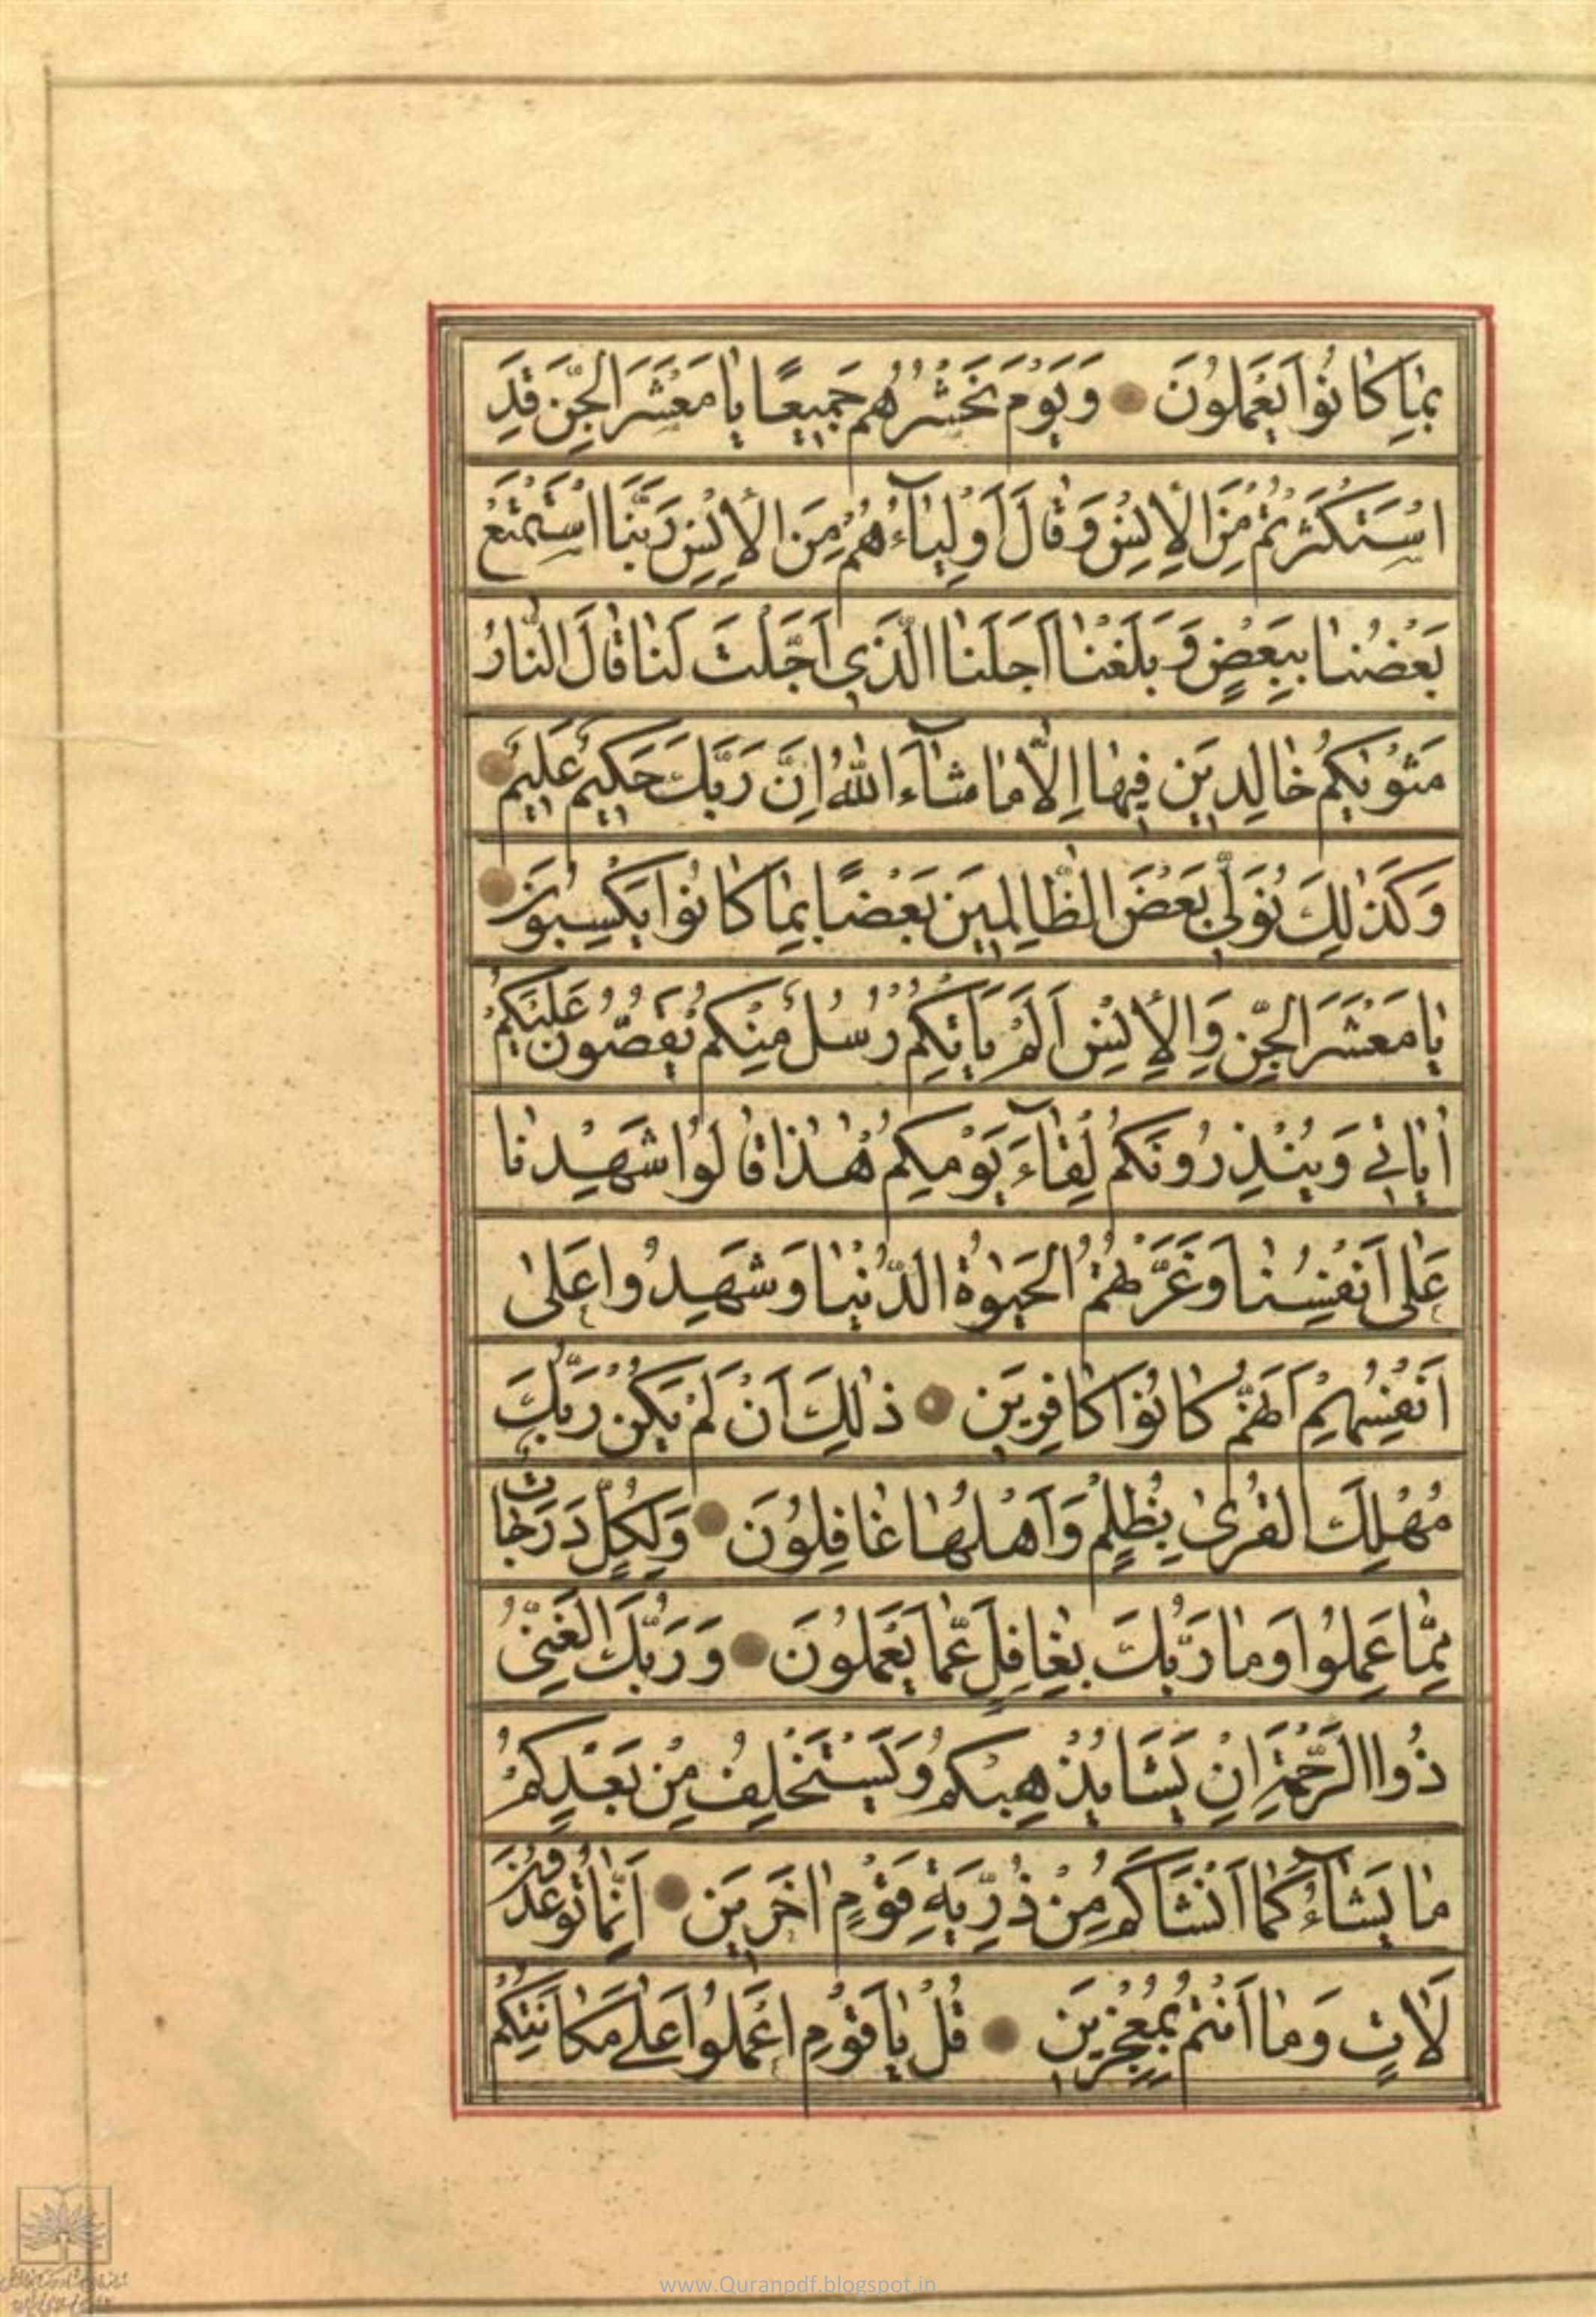 بِمٰا كٰانُوا يَعْمَلُونَ وَيَوْمَ نَحْشُرُهُمْ جَمِيعًا يٰا مَعْشَرَ الْجِنِّ قَدِ
اسْتَكْثَرْتُمْ مِنَ الْإِنْسِ وَقٰالَ أَوْلِيٰآءُهُمْ مِنَ الْإِنْسِ رَبَّنَا اسْتَمْتَعَ
بَعْضُنٰا بِبَعْضٍ وَبَلَغْنٰا أَجَلَنَا الَّذِي أَجَّلْتَ لَنٰا قٰالَ النّٰارُ
مَثْوٰيكُمْ خٰالِدِينَ فِيهٰا إِلّٰا مٰا شٰآءَ اللّٰهُ إِنَّ رَبَّكَ حَكِيمٌ عَلِيمٌ
وَكَذٰلِكَ نُوَلِّي بَعْضَ الظّٰالِمِينَ بَعْضًا بِمٰا كٰانُوا يَكْسِبُونَ
يٰا مَعْشَرَ الْجِنِّ وَالْإِنْسِ أَلَمْ يَأْتِكُمْ رُسُلٌ مِنْكُمْ يَقُصُّونَ عَلَيْكُمْ
اٰيٰاتِي وَيُنْذِرُونَكُمْ لِقٰآءَ يَوْمِكُمْ هٰذٰا قٰالُوا شَهِدْنٰا
عَلٰى أَنْفُسِنٰا وَغَرَّتْهُمُ الْحَيٰوةُ الدُّنْيٰا وَشَهِدُوا عَلٰى
أَنْفُسِهِمْ أَنَّهُمْ كٰانُوا كٰافِرِينَ ذٰلِكَ أَنْ لَمْ يَكُنْ رَبُّكَ
مُهْلِكَ الْقُرٰى بِظُلْمٍ وَأَهْلُهٰا غٰافِلُونَ وَلِكُلٍّ دَرَجٰاتٌ
مِمّٰا عَمِلُوا وَمٰا رَبُّكَ بِغٰافِلٍ عَمّٰا يَعْمَلُونَ وَرَبُّكَ الْغَنِيُّ
ذُو الرَّحْمَةِ إِنْ يَشَأْ يُذْهِبْكُمْ وَيَسْتَخْلِفْ مِنْ بَعْدِكُمْ
مٰا يَشٰآءُ كَمٰا أَنْشَأَكُمْ مِنْ ذُرِّيَّةِ قَوْمٍ اٰخَرِينَ إِنَّمٰا تُوعَدُونَ
لَاٰتٍ وَمٰا أَنْتُمْ بِمُعْجِزِينَ قُلْ يٰا قَوْمِ اعْمَلُوا عَلٰى مَكٰانَتِكُمْ
www.Quranpdf.blogspot.in